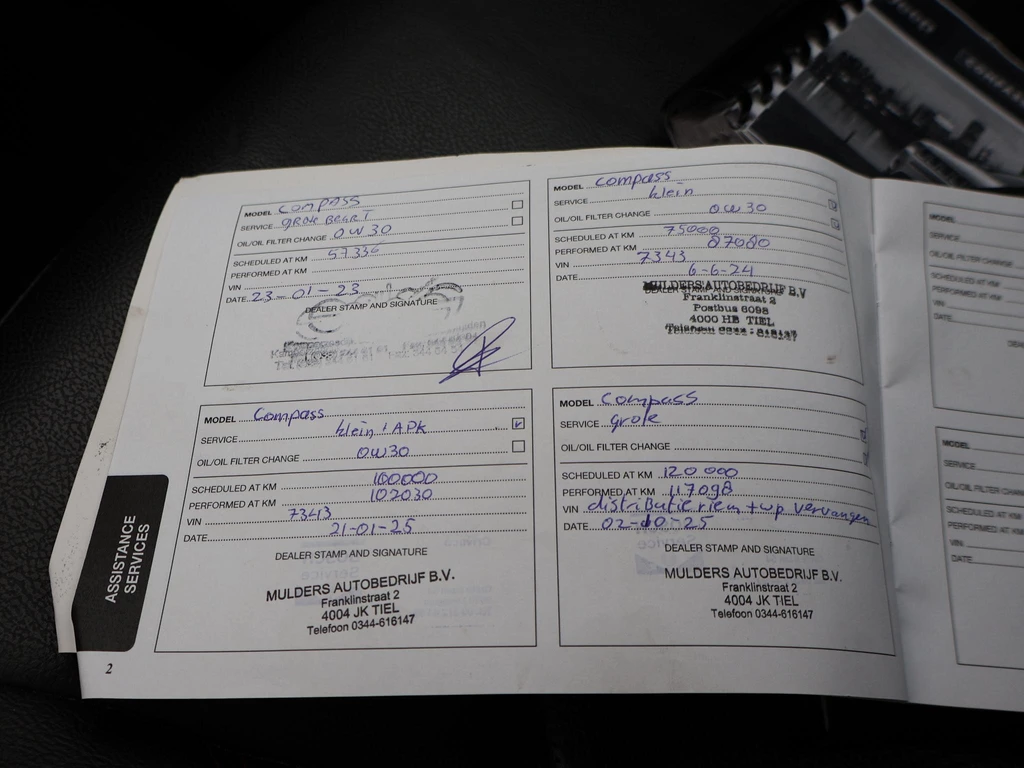 MODEL Compass
SERVICE GROTE BEURT
OIL/OIL FILTER CHANGE 0W30
SCHEDULED AT KM 57336
PERFORMED AT KM
VIN
DATE 23-01-23
DEALER STAMP AND SIGNATURE
MODEL Compass
SERVICE klein
OIL/OIL FILTER CHANGE 0W30
SCHEDULED AT KM 75000
PERFORMED AT KM 87080
VIN 7343
DATE 6-6-24
DEALER STAMP AND SIGNATURE
MULDERS AUTOBEDRIJF B.V
Franklinstraat 2
Postbus 6098
4000 HB TIEL
Telefoon 0344-616147
MODEL Compass
SERVICE klein + APK
OIL/OIL FILTER CHANGE 0W30
SCHEDULED AT KM 100000
PERFORMED AT KM 102030
VIN 7343
DATE 21-01-25
DEALER STAMP AND SIGNATURE
MULDERS AUTOBEDRIJF B.V.
Franklinstraat 2
4004 JK TIEL
Telefoon 0344-616147
MODEL Compass
SERVICE grote
OIL/OIL FILTER CHANGE
SCHEDULED AT KM 120 000
PERFORMED AT KM 117098
VIN distributieriem + wp vervangen
DATE 02-10-25
DEALER STAMP AND SIGNATURE
MULDERS AUTOBEDRIJF B.V.
Franklinstraat 2
4004 JK TIEL
Telefoon 0344-616147
ASSISTANCE
SERVICES
2
MODEL
SERVICE
OIL/OIL FILTER CHANGE
SCHEDULED AT KM
PERFORMED AT KM
VIN
DATE
MODEL
SERVICE
OIL/OIL FILTER CHANGE
SCHEDULED AT KM
PERFORMED AT KM
VIN
DATE